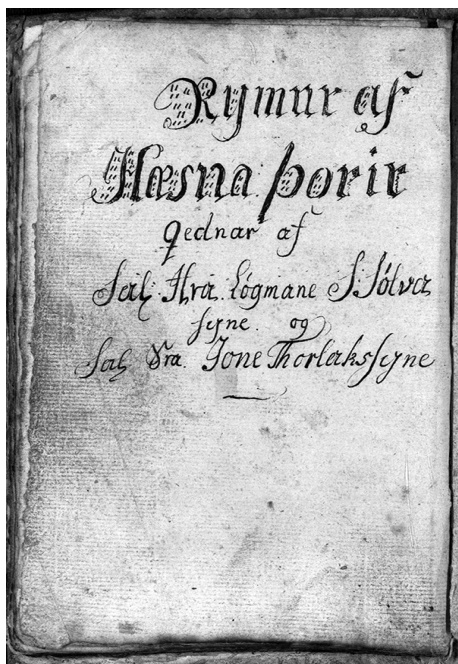 Rymur af
Hæsna þorir
qednar af
Sal: Hra. Lógmane S. Sólva
syne. og
Sal: Sra. Jone Thorlaks syne